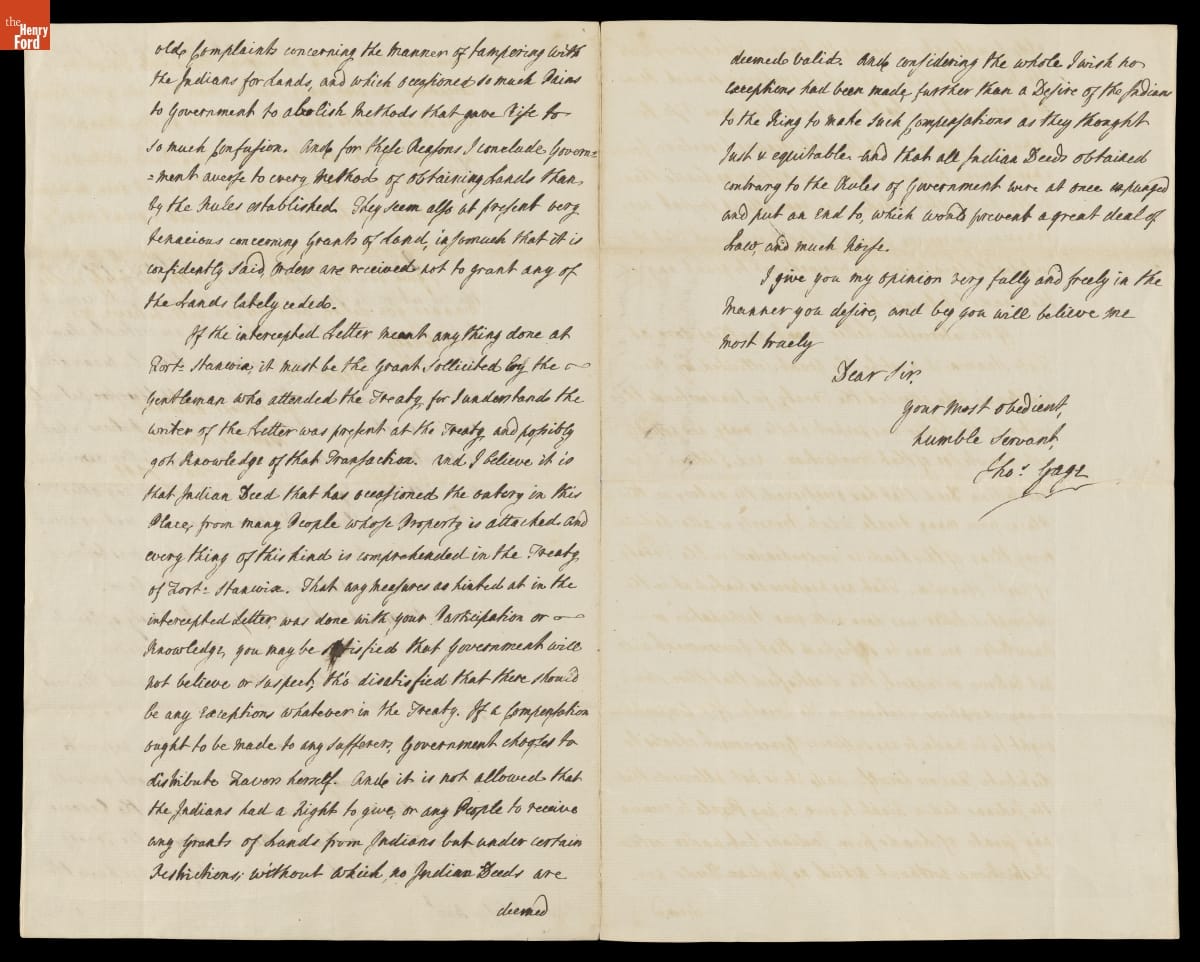 the
Henry
Ford
old Complaints concerning the Manner of tampering with
the Indians for Lands, and which occasioned so much Pains
to Government to abolish Methods that gave Rise to
so much Confusion. And for these Reasons I conclude Govern=
=ment averse to every Method of obtaining Lands than
by the Rules established. They seem also at present very
tenacious concerning Grants of Land, insomuch that it is
confidently said, Orders are received not to grant any of
the Lands lately ceded.
If the intercepted Letter meant any thing done at
Fort: Stanwix, it must be the Grant sollicited by the
Gentleman who attended the Treaty, for I understand the
writer of the Letter was present at the Treaty, and possibly
got Knowledge of that Transaction. And I believe it is
that Indian Deed that has occasioned the outcry in this
Place, from many People whose Property is attacked and
every thing of this kind is comprehended in the Treaty
of Fort: Stanwix. That any measures as hinted at in the
intercepted Letter, was done with your Participation or
Knowledge, you may be satisfied that Government will
not believe or suspect, tho' disatisfied that there should
be any Exceptions whatever in the Treaty. If a Compensation
ought to be made to any sufferers, Government chooses to
distribute Favors herself. And it is not allowed that
the Indians had a Right to give, or any People to receive
any Grants of Lands from Indians but under certain
Restrictions; without which, no Indian Deeds are
deemed
deemed valid. And considering the whole I wish no
Exceptions had been made, further than a Desire of the Indians
to the King to make such Compensations as they thought
Just & equitable. and that all Indian Deeds obtained
contrary to the Rules of Government were at once expunged
and put an End to, which would prevent a great deal of
Law, and much Noise.
I give you my opinion very fully and freely in the
Manner you desire, and beg you will believe me
most truely
Dear Sir,
Your most obedient,
humble Servant,
Tho.s Gage